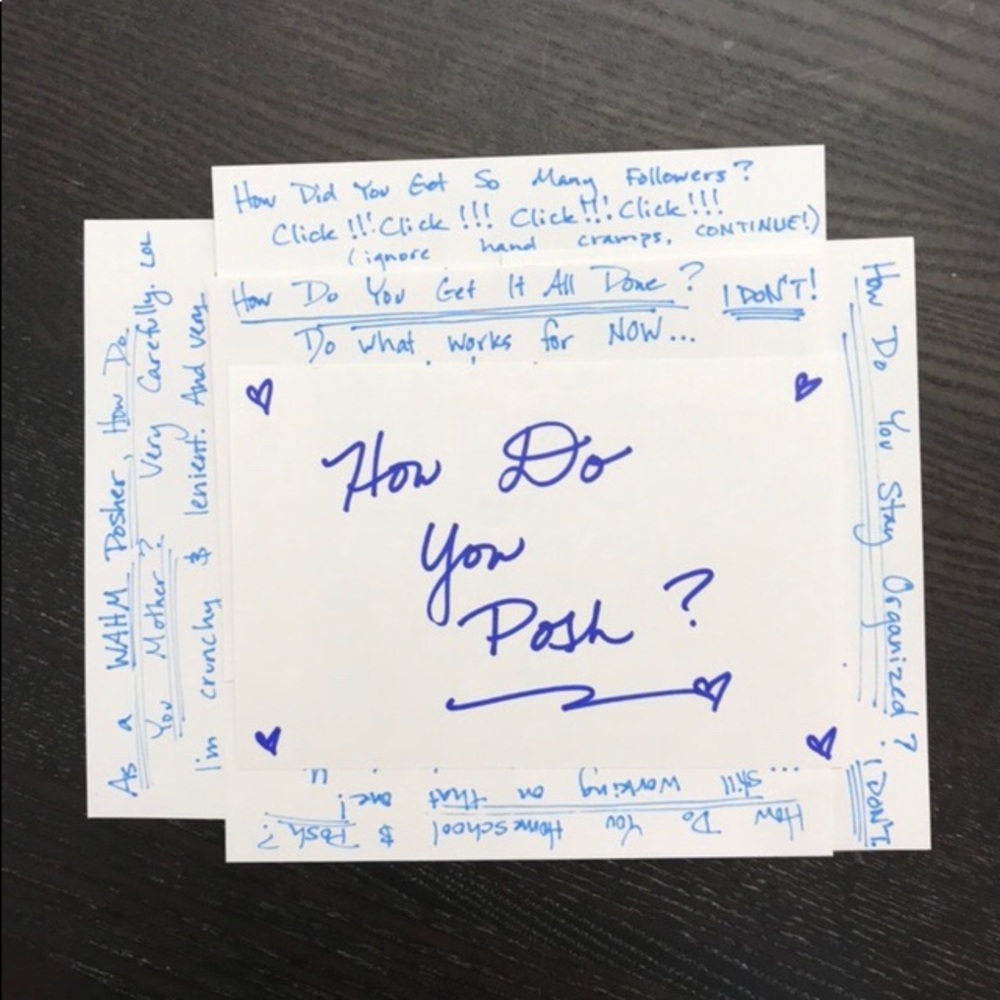 How Did You Get So Many Followers?
Click!!! Click!!! Click!!! Click!!!
(ignore hand cramps, CONTINUE!)
How Do You Get It All Done? I DON'T!
Do what works for NOW...
How Do
You
Posh?
As a WAHM Posher, How Do
You Mother?? Very Carefully. LOL
I'm crunchy & lenient. And very
How Do You Stay Organized?
I DON'T.
How Do You Homeschool & Posh?
... still working on that one!